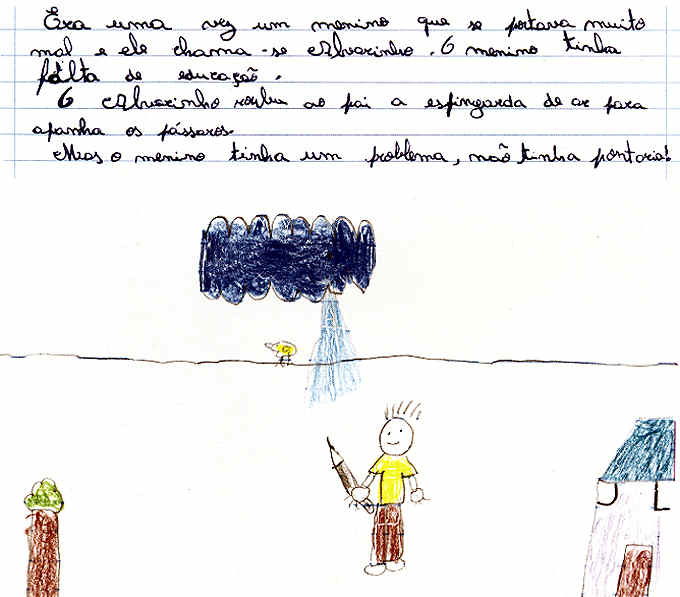 Era uma vez um menino que se portava muito
mal e ele chama-se Alvarinho. O menino tinha
falta de educação.
O Alvarinho roubu ao pai a espingarda de ar para
apanha os pássaros.
Mas o menino tinha um problema, não tinha pontaria!